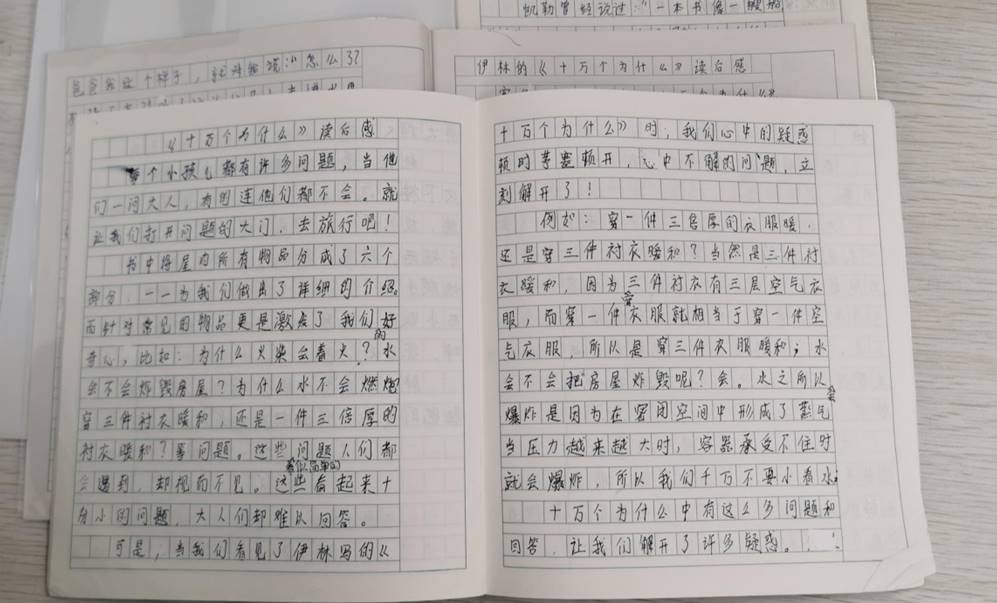 凯勒曾经说过："一本书像一艘船
爸爸我这个样子，
伊林的《十万个为什么》读后感
《十万个为什么》读后感
每个小孩儿都有许多问题，当他
们一问大人，有的连他们都不会。就
让我们打开问题的大门，去旅行吧！
书中将屋内所有物品分成了六个
部分，一一为我们做出了详细的介绍。
而针对常见的物品更是激发了我们的好
奇心，比如：为什么火柴会着火？水
会不会炸毁房屋？为什么水不会燃烧
穿三件衬衣暖和，还是一件三倍厚的
衬衣暖和？等问题。这些问题人们都
会遇到，却视而不见。这些看似简单的看起来十
分小的问题，大人们却难以回答。
可是，当我们看见了伊林写的《
十万个为什么》时，我们心中的疑惑
顿时茅塞顿开，心中不解的问题，立
刻解开了！
例如：穿一件三倍厚的衣服暖，
还是穿三件衬衣暖和？当然是三件衬
衣暖和，因为三件衬衣有三层空气衣
服，而穿一件衣服就相当于穿一件空
气衣服，所以是穿三件衣服暖和；水
会不会把房屋炸毁呢？会。水之所以会
爆炸是因为在密闭空间中形成了蒸气
当压力越来越大时，容器承受不住时
就会爆炸，所以我们千万不要小看水。
十万个为什么中有这么多问题和
回答，让我们解开了许多疑惑。